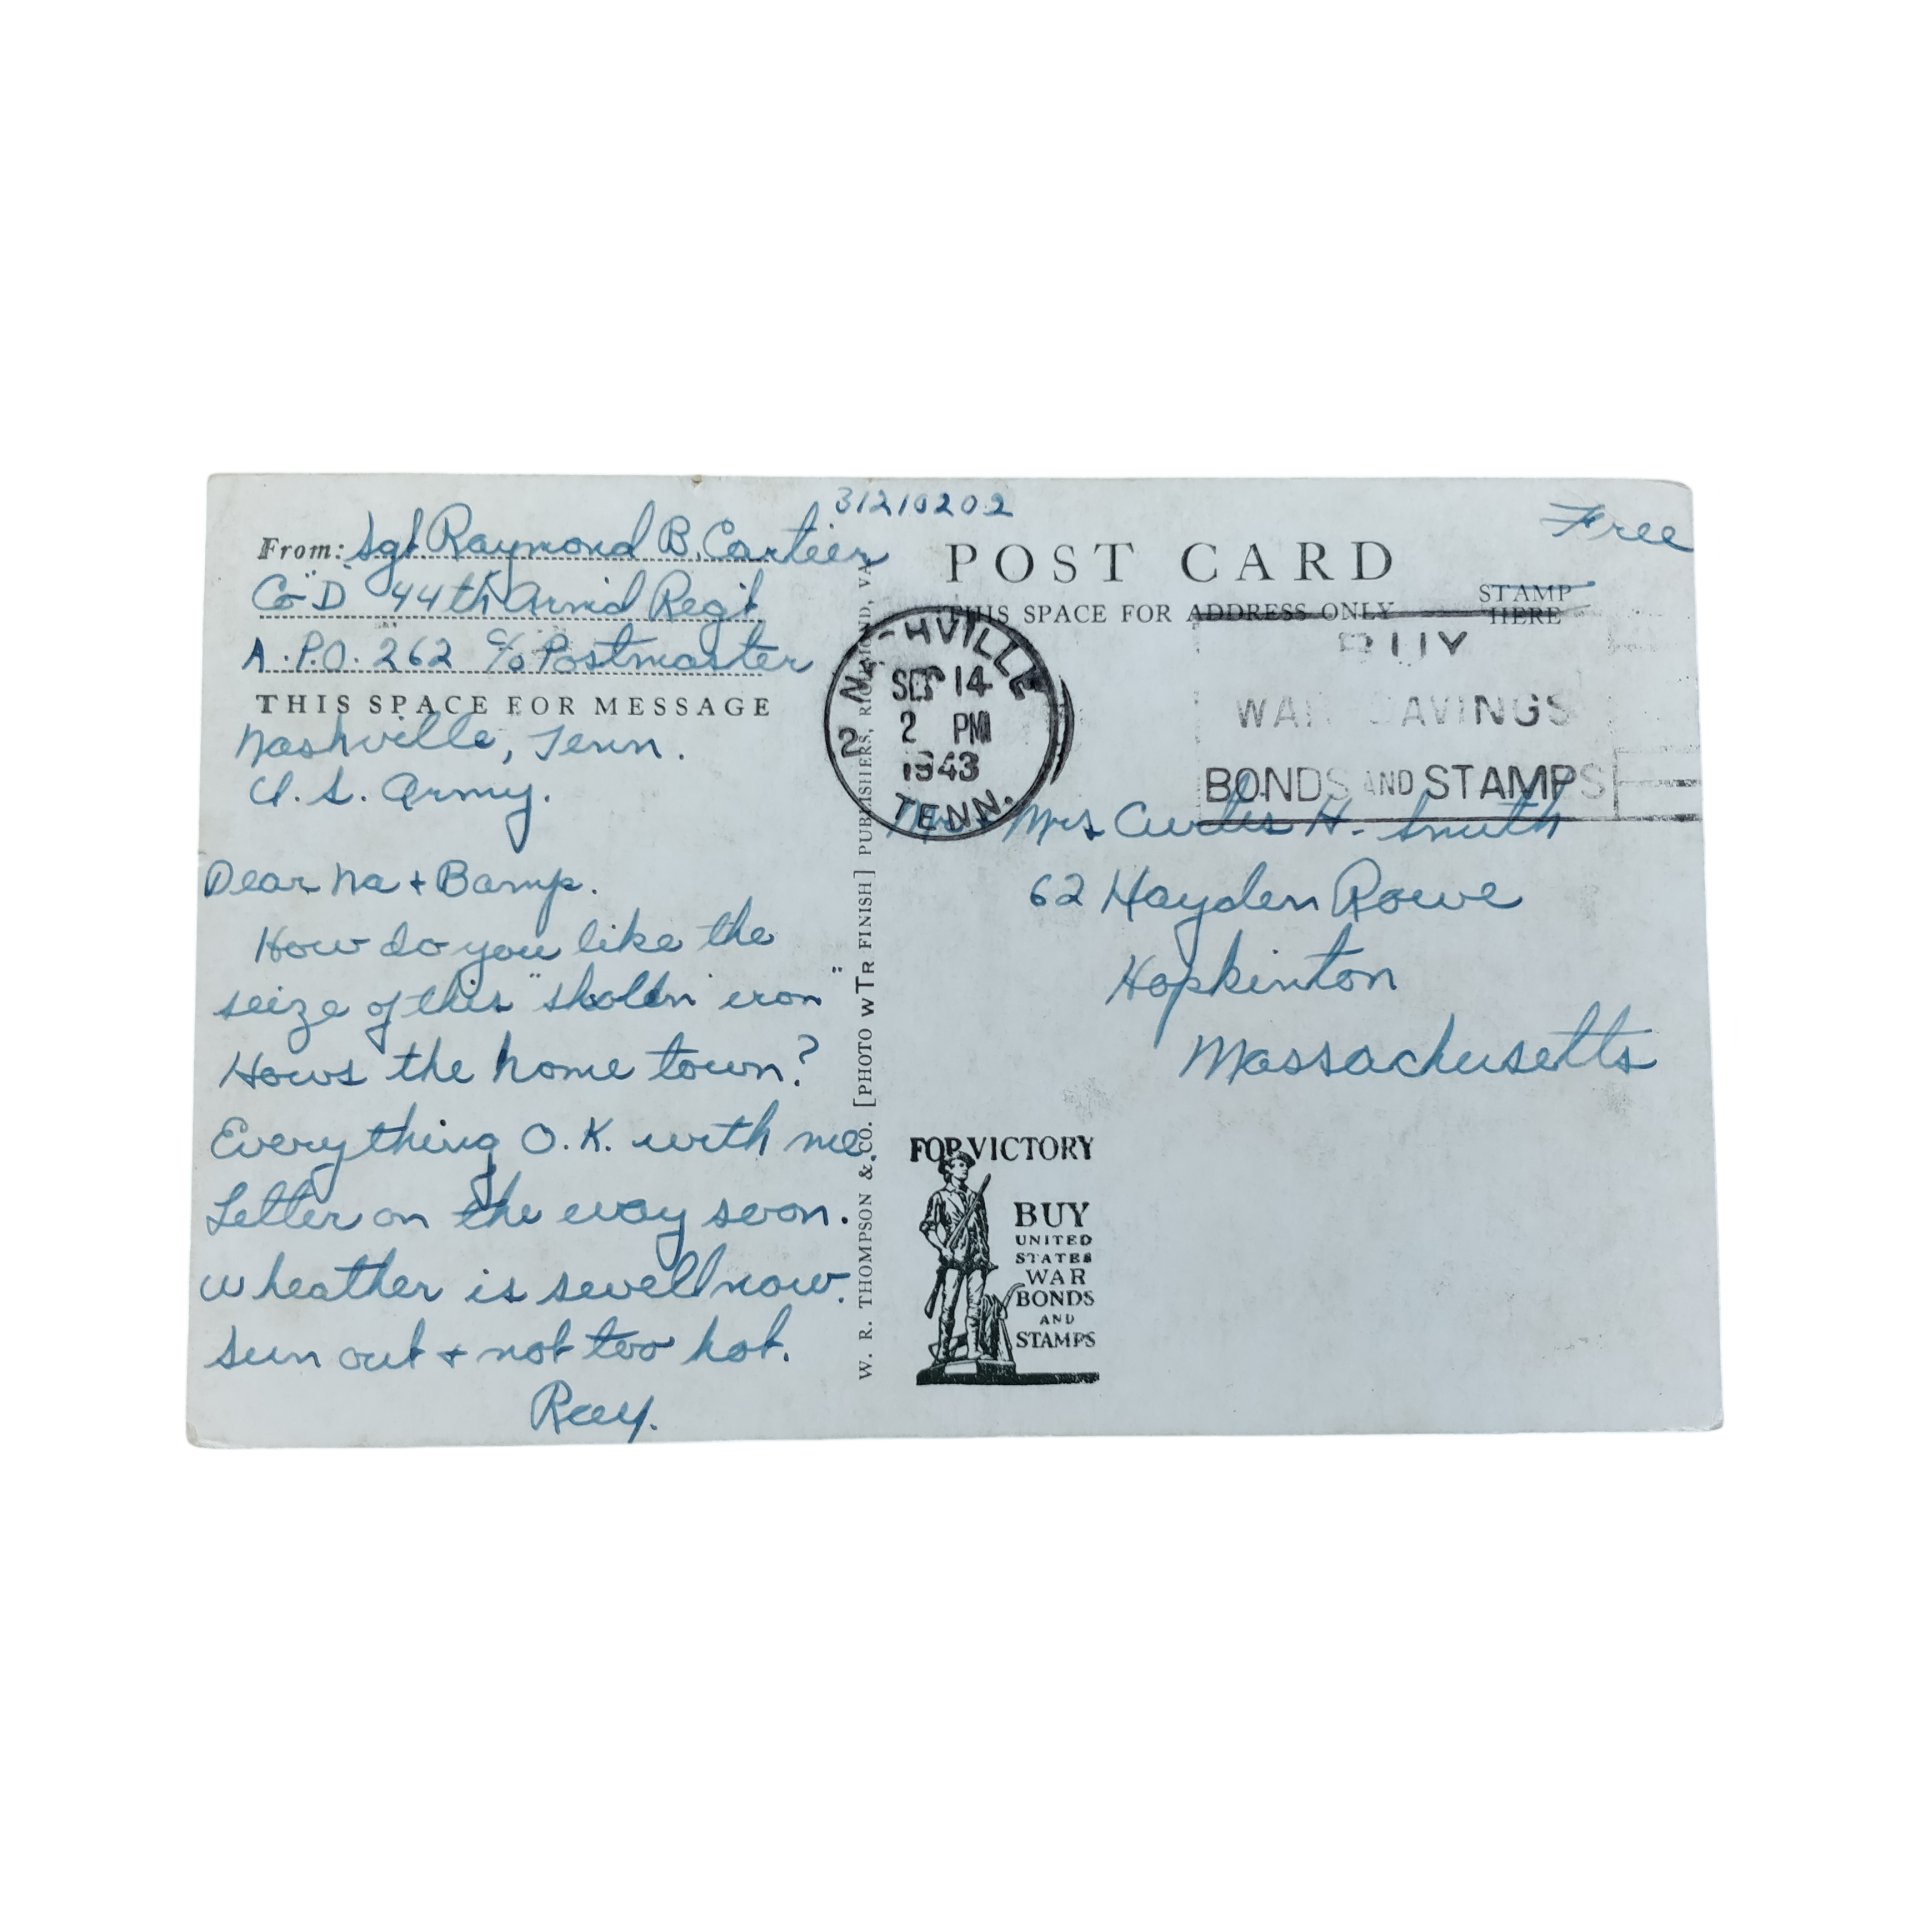 31210202
From: Sgt Raymond B. Cartier
Co "D" 44th Arm'd Reg't
A.P.O. 262 c/o Postmaster
THIS SPACE FOR MESSAGE
Nashville, Tenn.
U.S. Army.
Dear Na + Bamp.
How do you like the
seize of this "sholdn iron"
Hows the home town?
Everything O.K. with me.
Letter on the way soon.
Wheather is swell now.
Sun out + not too hot.
Ray.
W. R. THOMPSON & CO. [PHOTO WTR FINISH] PUBLISHERS, RICHMOND, VA.
Free
POST CARD
THIS SPACE FOR ADDRESS ONLY
STAMP
HERE
NASHVILLE 2
SEP 14
2 PM
1943
TENN.
BUY
WAR SAVINGS
BONDS AND STAMPS
Mr + Mrs Curtis H. Smith
62 Hayden Rowe
Hopkinton
Massachusetts
FOR VICTORY
BUY
UNITED
STATES
WAR
BONDS
AND
STAMPS